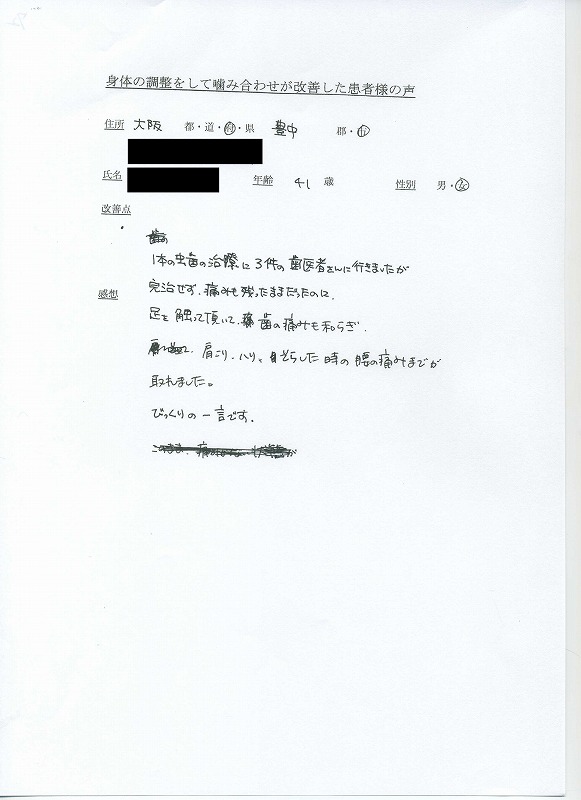 身体の調整をして噛み合わせが改善した患者様の声
住所 大阪 都・道・府・県 豊中 郡・市
氏名 年齢 41 歳 性別 男・女
改善点
歯の
1本の虫歯の治療に3件の歯医者さんに行きましたが
感想
完治せず、痛みも残ったままだったのに、
足を触って頂いて、歯の痛みも和らぎ、
肩こり、ハリ、身そらした時の腰の痛みまでが
取れました。
びっくりの一言です。